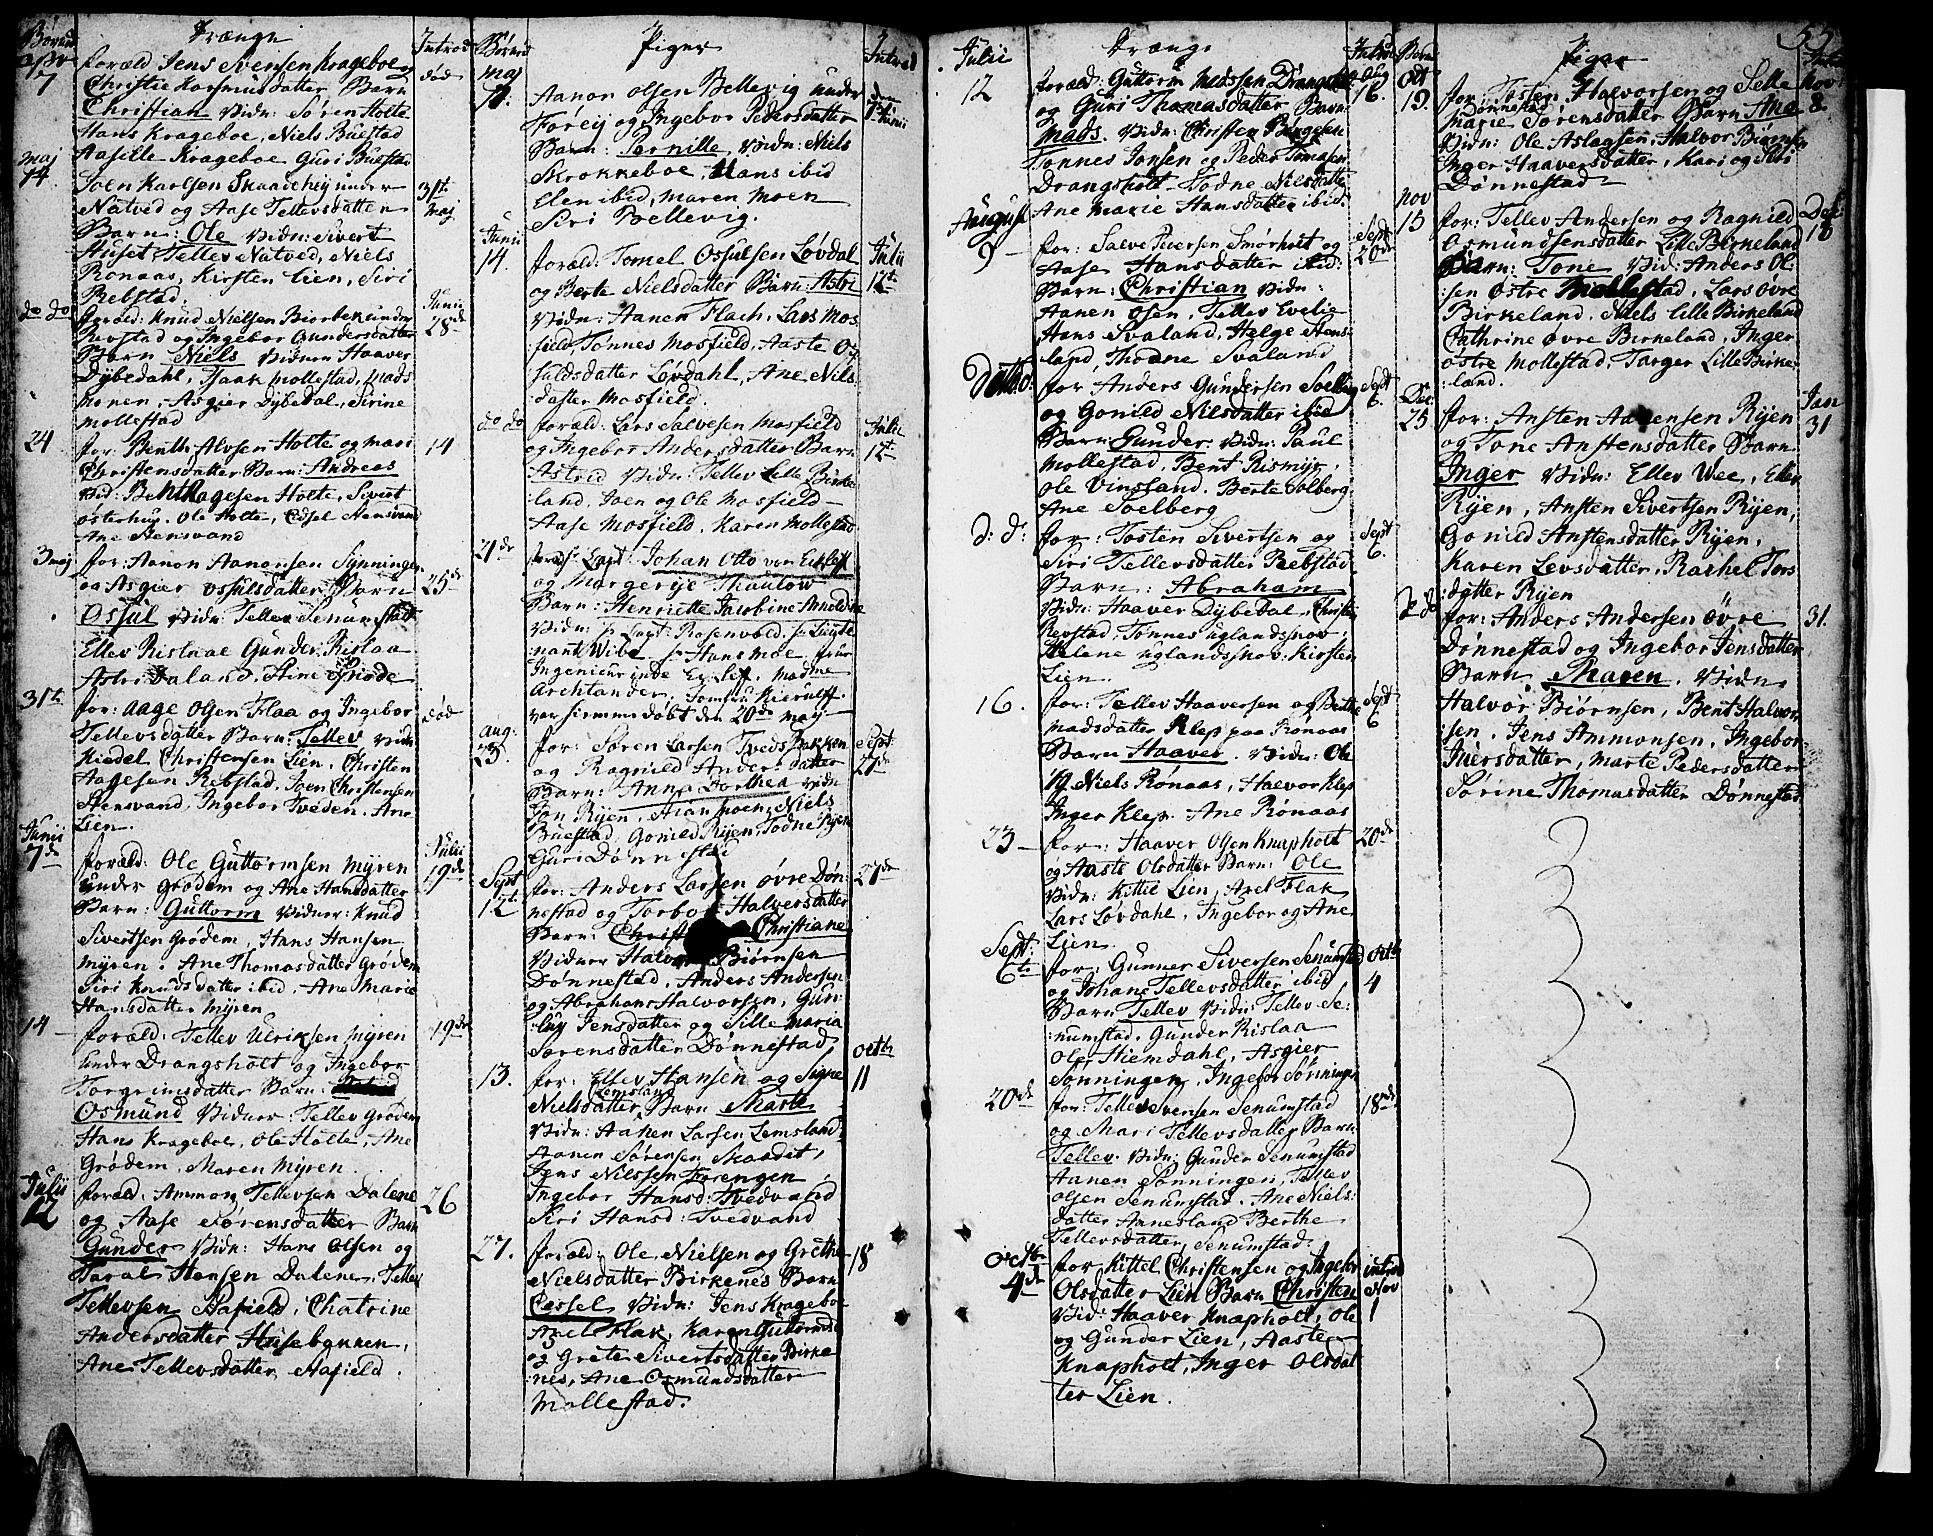 Drænge
Introd
apr
7
foræld Jens Svensen Krageboe
Christie Aasmundsdatter Barn
død
Christian Vidn: Søren Holte
Hans Krageboe, Niels Buestad
Aasille Krageboe Guri Buestad
maj
14
Joen Karlsen Skaarehej under
31te maj
Natved og Aase Tellevsdatter
Barn: Ole Vidn: Sivert
Huset Tellev Natved, Niels
Rønaas, Kirsten Lien, Siri
Rebstad.
do do
foræld: Knud Nielsen Biorbek under
Junii 28de
Revstad og Ingebor Gundersdatter
Barn Niels Vidner Haaver
Dybedahl, Isaak Mollestad, Mads
Monen, Asgier Dybedal, Sirine
Mollestad
24
for: Benth Alvsen Holte og Mari
14
Christensdatter Barn: Andreas
Vid: Benth Aagesen Holte, Sivert
Osterhus. Ole Holte, Edsel Stensvand
Ane Stensvand
3 maj
for: Aanon Aanonsen Synningen
25de
og Asgier Ossulsdatter Barn
Ossul Vidn: Tellev Senumstad
Ellev Rislaae Gunder Rislaa
Astri Daland, Stine
31te
for: Aage Olsen Flaa og Ingebor
død
Tellevsdatter Barn: Tellev Vidn
Kiedel Christensen Lien, Christen
Aagesen Rebstad, Joen Christensen
Stensvand, Ingebor Tveden, Ane
Lien.
Junii
7de
foræld: Ole Guttormsen Myren
Julii 19de
under Grødem og Ane Hansdatter
Barn: Guttorm Vidner: Knud
Sivertsen Grødem, Hans Hansen
Myren. Ane Thomasdatter Grødem
Siri Knudsdatter ibid, Ane Marie
Hansdatter Myren
14
foræld: Tellev Ulriksen Myren
19de
under Drangsholt og Ingebor
Torgrimsdatter Barn:
Osmund Vidner: Tellev Grødem
Hans Krageboe, Ole Holte, Ane
Grødem, Maren Myren
Julii
12
foræld: Ammon Tellevsen Dalene
26
og Aase Sørensdatter Barn
Gunder Vidn: Hans Olsen og
Taral Hansen Dalene, Tellev
Tellevsen Hafield, Chatrine
Andersdatter Husebakken,
Ane Tellevsdatter Hafield.
Piger
Introd
maj
Aanon Olsen Bellevig under
den 7de Junii
Forej og Ingebor Pedersdatter
Barn: Pernille, Vidn: Niels
Skrokkeboe, Hans ibid
Elen ibid, Maren Moen
Siri Bellevig.
Junii
14.
foræld: Tomel Ossulsen Løvdal
Julii 12te
og Berte Nielsdatter Barn: Astri
Vidn: Aanen Flach, Lars Mos-
field, Tønnes Mosfield, Aaste Os-
suldsdatter Løvdahl, Ane Nils-
datter Mosfield.
do do
foræld: Lars Salvesen Mosfield
Julii 12te
og Ingebor Andersdatter Barn
Astrid Vidn: Tellev Lille Birke-
land, Joen og Ole Mosfield
Aase Mosfield, Karen Mollestad
21de
foræld: Capt: Johan Otto von
og Margerete Thaulow
Barn: Henriette Jacobine Arnoldine
Vidn: hr Capt: Rosenvold, hr Lieute-
nant Wibe hr Hans Moe, frue
Ingenieurinde, Madme
Archtander, Jomfru Kierulff
var hiemmedøbt den 20de maj
aug:
23.
for: Søren Larsen Tveds Bakken
Sept 27de
og Ragnild Andersdatter
Barn: Anna Dorthea Vidn
Jon Ryen, Stian Moen, Niels
Buestad, Gonild Ryen Todne Ryen
Guri Dønnestad
Sept
12
for: Anders Larsen øvre Døn-
27de
nestad og Torbor Halversdatter
Barn: Christiane
Vidner Halvor Biørnsen
Dønnestad, Anders Andersen
og Abraham Halvorsen, Gun-
lav Jensdatter og Sille Maria
Sørensdatter Dønnestad
13.
for: Ellev Hansen og Signe
octb: 11
Nielsdatter Lemsland Barn Marte
Vidn: Aanen Larsen Lemsland
Aanen Sørensen Skaadit,
Jens Nilssen Forengen
Ingebor Hansd: Tvedvand
Siri Hansd: Tvedvand
27.
foræld: Ole Nielsen og Grethe
18
Nielsdatter Birkenes Barn
Cessel Vidn: Jens Krageboe
Axel Flak, Karen Guttormsd
og Grete Sivertsdatter Birke-
nes, Ane Osmundsdatter
Mollestad.
Julii
12
Drænge
foræld: Guttorm Madssen Drangsholt
aug 16.
og Guri Thomasdatter Barn
Mads. Vidn: Christen Børgesen
Tønnes Jonsen og Peder Tomasen
Drangsholt Todne Nilsdatter
Ane Marie Hansdatter ibid:
August
9
for: Salve Siversen Smørholt og
Sept 20de
Aase Hansdatter ibid:
Barn: Christian Vidn:
Aanen Osen, Tellev Evelie
Hans Svaland, Helge Stens-
land, Thodne Svaland
for Anders Gundersen Soelberg
Sept 6.
og Gonild Nilsdatter ibid
Barn: Gunder. Vidn: Paul
Mollestad, Bent Rismyr,
Ole Vinsland. Berte Solberg
Ane Soelberg
d: d:
for: Tosten Sivertsen og
Sept 6.
Siri Tellevsdatter Rebstad
Barn: Abraham
Vidn: Haaver Dybedal, Christen
Revstad, Tønnes Uglandsnov,
Helene Uglandssnov: Kirsten
Lien.
16.
for: Tellev Haaversen og Berthe
Sept 6
Madsdatter Klep paa Rønaas
Barn Haaver. Vidn: Ole
og Niels Rønaas, Halvor Klep
Inger Klep. Ane Rønaas
23
for: Haaver Olsen Knapholt
20de
og Aaste Olsdatter Barn: Ole
Vidn: Kittil Lien, Axel Flak
Lars Løvdahl, Ingebor og Ane
Lien.
Sept:
6te
for: Gunner Siversen Senumstad
octb 4
og Johane Tellevsdatter ibid
Barn Tellev Vidn: Tellev Se-
numstad. Gunder Rislaa
Ole Hiemdahl, Asgier
Sønningen, Ingebor Sønningen
20de
for: Tellev Svensen Senumstad
18de
og Mari Tellevsdatter Barn
Tellev. Vidn: Gunder Senumstad
Aanen Sønningen, Tellev
Olsen Senumstad. Ane Niels-
datter Aanesland Berthe
Tellevsdatter Senumstad.
Octb
4de
for Kittel Christensen og Ingebor
introd Nov 1
Olsdatter Lien Barn Christen
Vid: Haaver Knapholt, Ole
og Gunder Lien, Aaste
Knapholt, Inger Olsdat-
ter Lien.
55
Piger
Oct
19.
for: Tosten Halvorsen og Sille
nov: 8.
Marie Sørensdatter Dønnestad Barn Ane
Vidn: Ole Aslagsen, Halvor Biørnsen
Inger Haaversdatter, Kari og Siri
Dønnestad
nov
15
for: Tellev Andersen og Ragnild
Dec 18
Osmundsensdatter Lille Birkeland
Barn: Tone Vid: Anders Ol-
sen Østre Mollestad, Lars Øvre
Birkeland. Niels Lille Birkeland
Cathrine Øvre Birkeland, Inger
Østre Mollestad, Targer Lille Birke-
land.
Dec:
25
for: Ansten Aanensen Ryen
Jan 31
og Tone Anstensdatter Barn
Inger Vidn: Ellev Wee, Ellev
Ryen, Ansten Sivertsen Ryen,
Gonild Anstensdatter Ryen,
Karen Levsdatter, Rachel Tors-
datter Ryen
d: do
for: Anders Andersen øvre
31.
Dønnestad og Ingebor Jensdatter
Barn. Maren. Vidn
Halvor Biørnsen, Bent Halvor-
sen. Jens Ammonsen. Ingebor
Iversdatter, Marte Pedersdatter
Sørine Thomasdatter Dønnestad